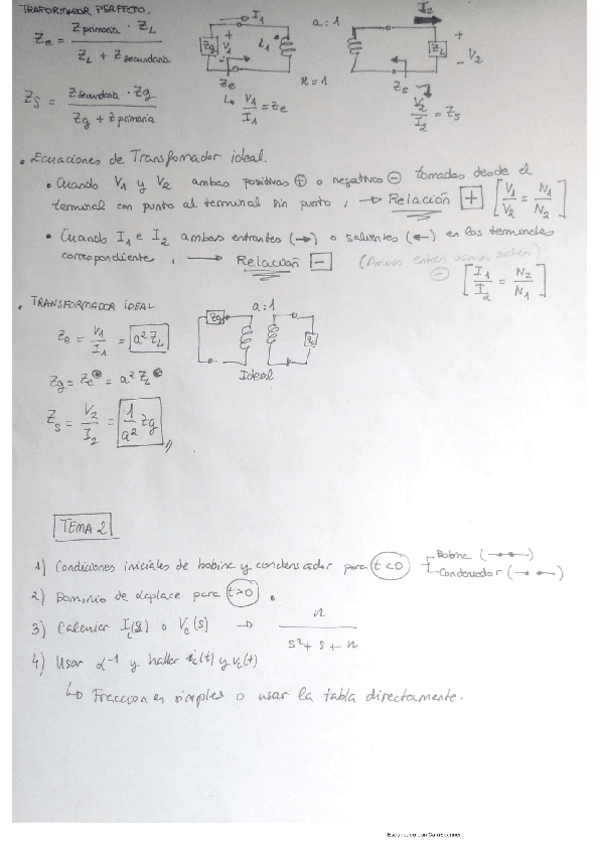 TRAFORMADOR PERFECTO.
Ze = Zprimaria · ZL / ZL + Zsecundaria
Zg V1 + - I1 L1 a:1 n=1 I2 ZL + - V2
Ze
↳ V1/I1 = Ze
Zs
V2/I2 = Zs
Zs = Zsecundaria · Zg / Zg + Zprimaria
• Ecuaciones de Transfomador ideal.
• Cuando V1 y V2 ambas positivas ⊕ o negativas ⊖ tomadas desde el
terminal con punto al terminal sin punto, → Relación + [V1/V2 = N1/N2]
• Cuando I1 e I2 ambas entrantes (→) o salientes (←) en los terminales
correspondiente, → Relación - (Ambas entran salen)
⊖ [I1/I2 = N2/N1]
• TRANSFORMADOR IDEAL
Ze = V1/I1 = a²ZL
Zg a:1 ZL
Ideal
Zg = Ze* = a² ZL*
Zs = V2/I2 = 1/a² Zg
TEMA 2
1) Condiciones iniciales de bobina y condensador para t<0 Bobina
Condensador
2) Dominio de Laplace para t>0.
3) Calcular IL(s) o Vc(s) → n / s²+s+n
4) Usar L⁻¹ y hallar iL(t) y vc(t)
↳ Fracciones simples o usar la tabla directamente.
Escaneado con CamScanner